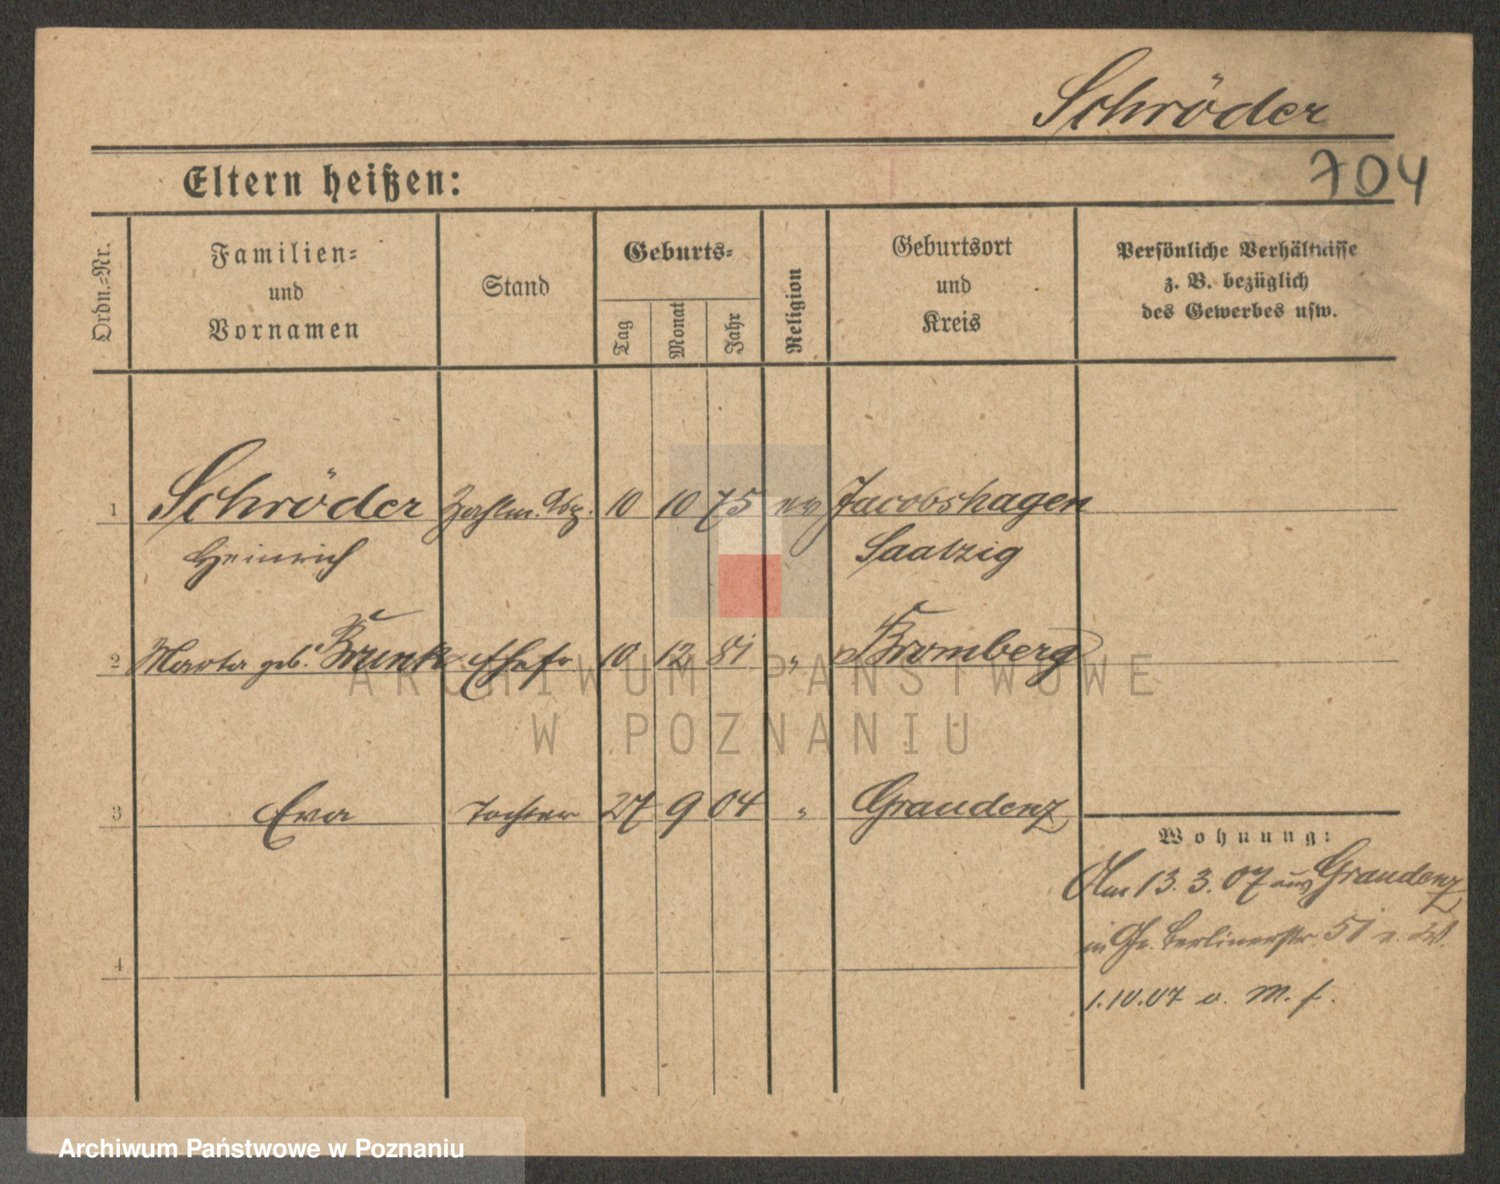 Schröder
704
Eltern heißen:
Ordn.=Nr.
Familien=
und
Vornamen
Stand
Geburts=
Tag
Monat
Jahr
Religion
Geburtsort
und
Kreis
Persönliche Verhältnisse
z. B. bezüglich
des Gewerbes usw.
1 Schröder Zahlm. 10 10 75 ev Jacobshagen
Heinrich Saatzig
2 Marta geb. Brunk Ehefr 10 12 81 " Bromberg
ARCHIWUM PAŃSTWOWE
W POZNANIU
3 Eva Tochter 27 9 04 " Graudenz
Wohnung:
Am 13. 3. 07 aus Graudenz
in Berlinerstr. 51
4
1.10.07
Archiwum Państwowe w Poznaniu